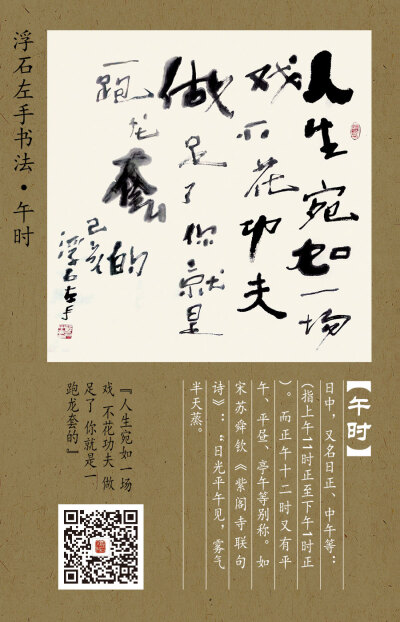 浮石左手书法·午时
人生宛如一场
戏不花功夫
做足了你就是
一跑龙套的
己亥浮石左手
【午时】
日中，又名日正、中午等：
（指上午11时正至下午1时正
）。而正午十二时又有平
午、平昼、亭午等别称。如
宋苏舜钦《紫阁寺联句
诗》：：“日光平午见，雾气
半天蒸。
『人生宛如一场
戏 不花功夫 做
足了 你 就是一
跑龙套的』